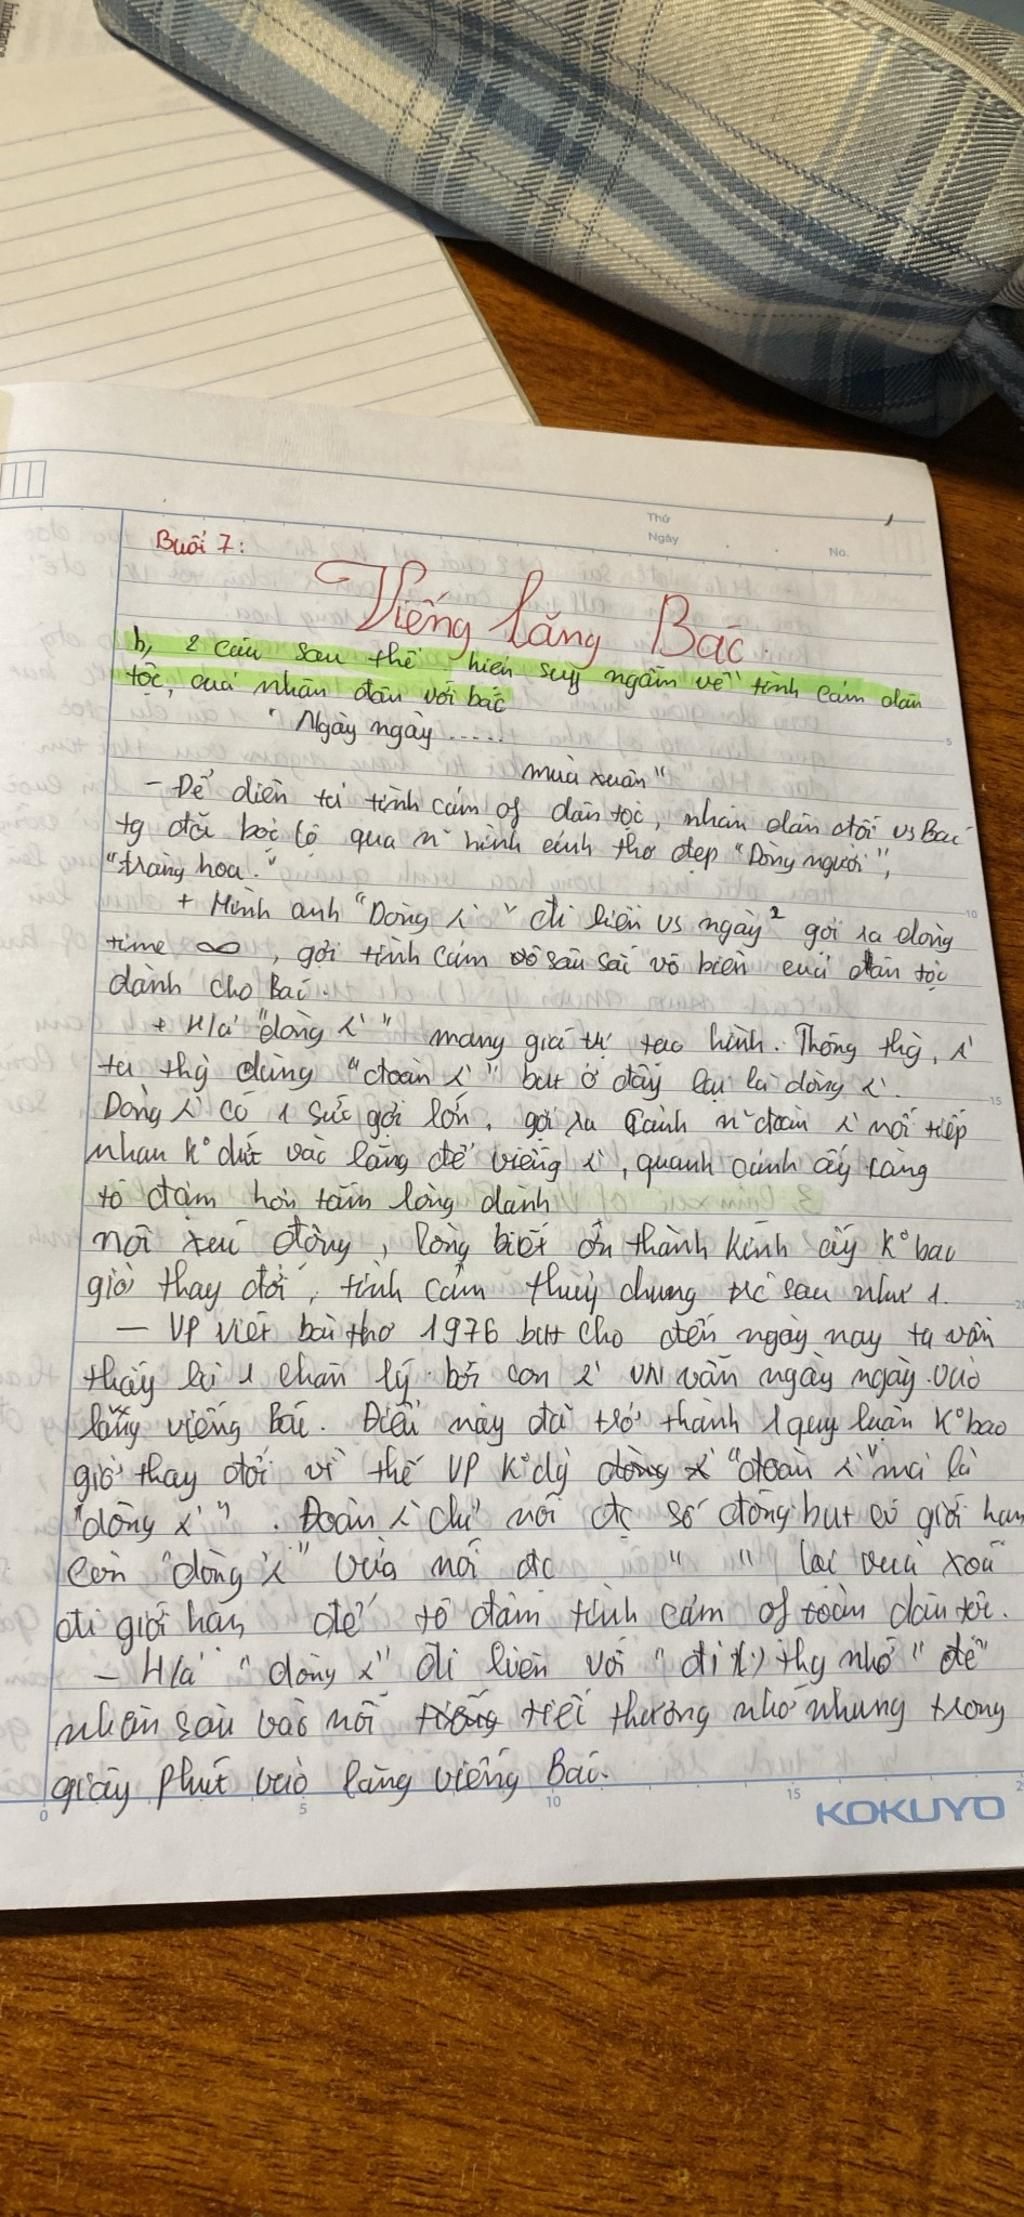 hindrance
Thứ
Ngày
No.
Buổi 7:
Viếng lăng Bác
b, 2 câu sau thể hiện suy ngẫm về tình cảm dân
tộc, của nhân dân với bác
"Ngày ngày .....
mùa xuân"
- Để diễn tả tình cảm of dân tộc, nhân dân đối vs Bác
tg đã bộc lộ qua n~ hình ảnh thơ đẹp "Dòng người",
"tràng hoa."
+ Hình ảnh "Dòng λ`" đi liền vs ngày² gợi ra dòng
time ∞, gợi tình cảm sâu sắc vô biên của dân tộc
dành cho Bác.
+ H/ả "dòng λ`" mang giá trị tạo hình. Thông thg`, λ`
ta thg` dùng "đoàn λ`" but ở đây lại là dòng λ`.
Dòng λ` có 1 sức gợi lớn, gợi ra cảnh n~ đoàn λ` nối tiếp
nhau k° dứt vào lăng để viếng λ`, quanh cảnh ấy càng
tô đậm hơn tấm lòng dành
nỗi xúc động, lòng biết ơn thành kính ấy k° bao
giờ thay đổi, tình cảm thuỷ chung trc sau như 1.
- VP viết bài thơ 1976 but cho đến ngày nay ta vẫn
thấy là 1 chân lý bởi con λ` VN vẫn ngày ngày vào
lăng viếng Bác. Điều này đã trở thành 1 quy luận k° bao
giờ thay đổi vì thế VP k° dg` "đoàn λ`" mà là
"dòng λ`". Đoàn λ` chỉ nói đc số đông but có giới hạn
còn "dòng λ`" vừa nói đc " " lại vừa xoá
đi giới hạn để tô đậm tình cảm of toàn dân tộc.
- H/ả "dòng λ`" đi liền với "đi (t) thg nhớ" để
nhấn sâu vào nỗi tiếc thương nhớ nhung trong
giây phút vào lăng viếng Bác.
0 5 10 15
KOKUYO